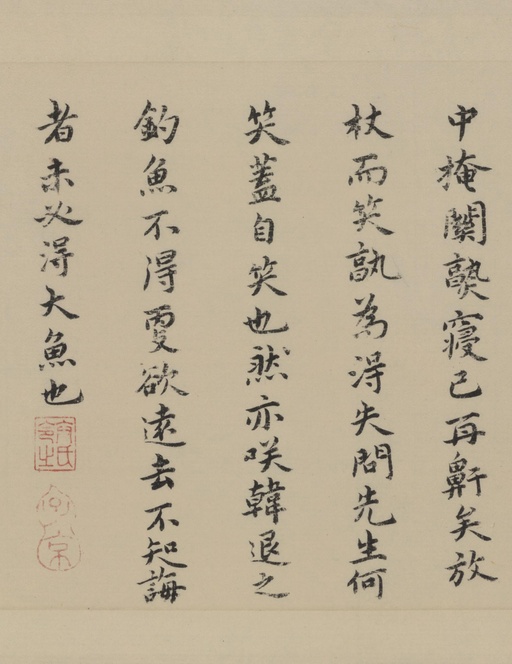 中掩關𭓘寢已再鼾矣放
杖而笑孰為得失問先生何
笑蓋自笑也然亦咲韓退之
釣魚不得更欲遠去不知誨
者未必得大魚也